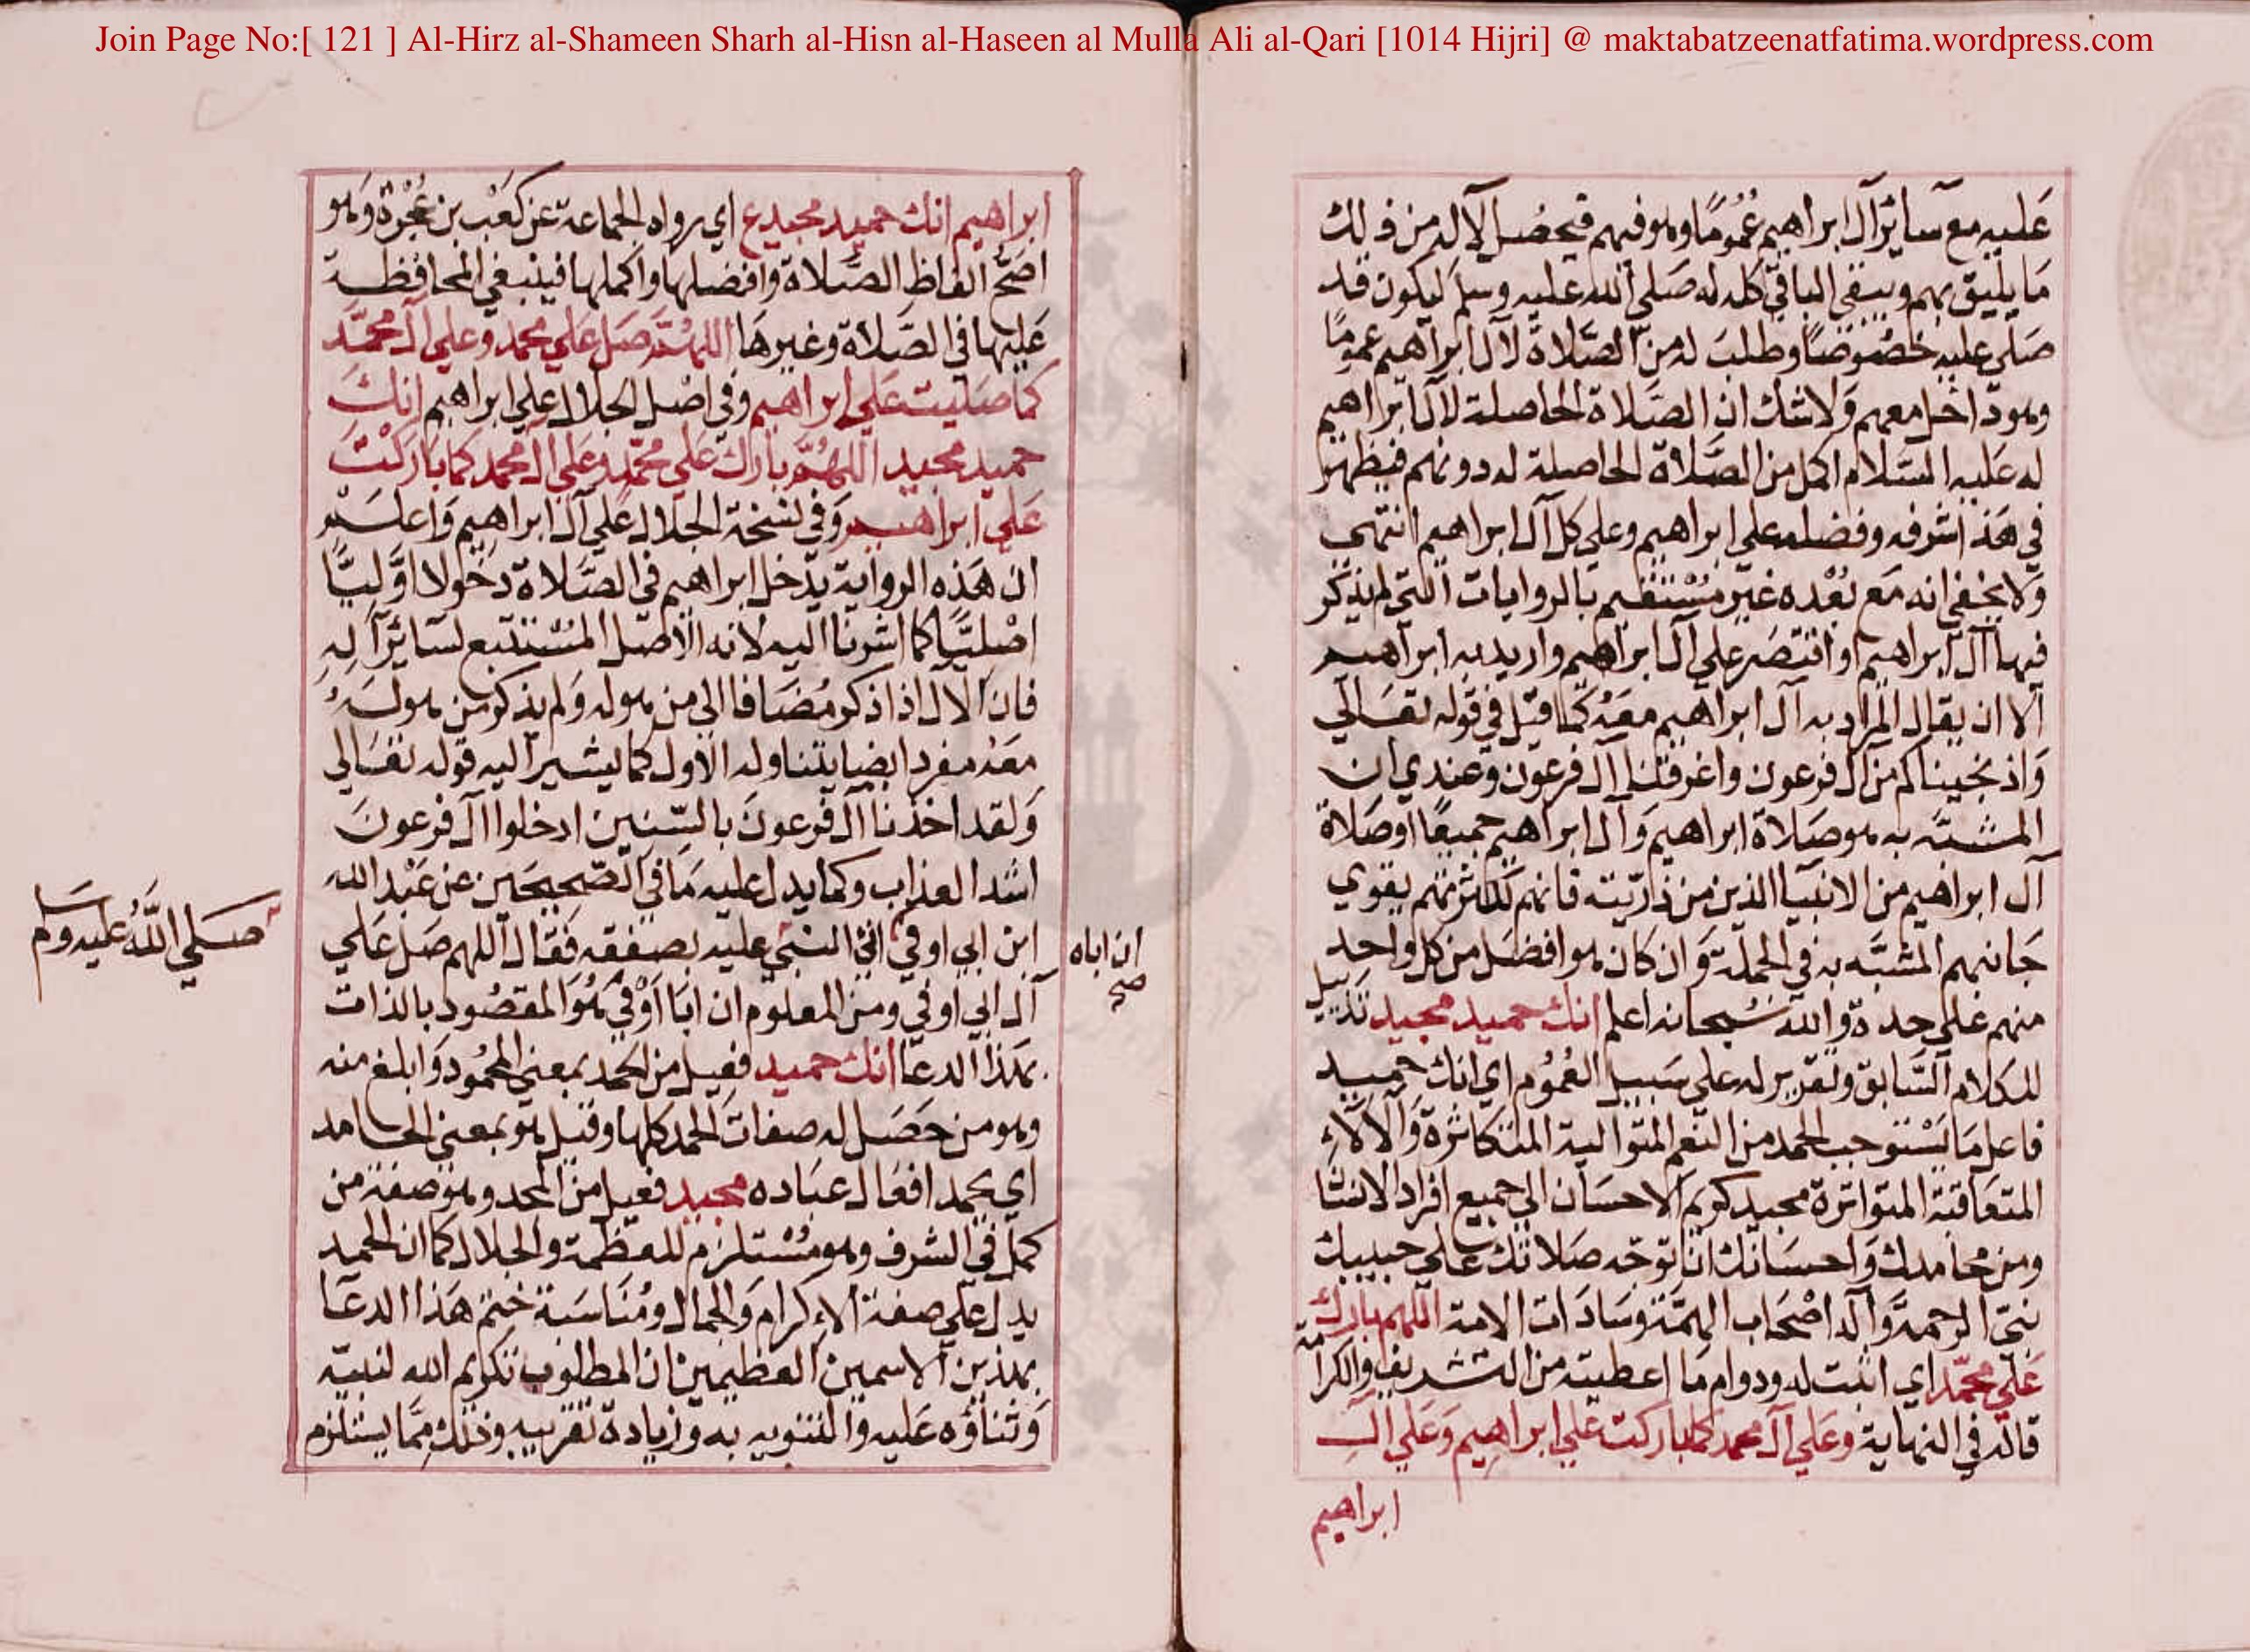 Join Page No:[ 121 ] Al-Hirz al-Shameen Sharh al-Hisn al-Haseen al Mulla Ali al-Qari [1014 Hijri] @ maktabatzeenatfatima.wordpress.com
عليه مع سائر آل ابراهيم عُمُومًا وهو فيهم فيحصُل لآله من ذلك
مَا يليق بهم ويبقي الباقي كله له صَلي الله عليه وسلم ليكون قد
صَلي عليه خصُوصًا وطلبَ له من الصَّلاة لآل ابراهيم عمومًا
وهو داخل معهم وَلا شك ان الصَّلاة الحاصلة لآل ابراهيم
له عَليه السَّلام اكمل من الصَّلاة الحاصلة له دونهم فيظهر
في هَذ اشرفه وفضله علي ابراهيم وعلي كل آل ابراهيم انتهي
وَلا يخفي انه مَع بُعْده غير مُسْتقيم بالروايات التي لم يذكر
فيها آل ابراهيم او اقتصَر علي آل ابراهيم واريد به ابراهيم
الا ان يقال المراد به آل ابراهيم معَهُ كما قيل في قوله تعَالي
وَاذ نجيناكم من آل فرعون واغرقنا آل فرعون وعندي ان
المشبّه به هو صَلاة ابراهيم وَآل ابراهيم جميعًا او صَلاة
آل ابراهيم من الانبيا الذين من ذريّته فانهم لكثرتهم يقوي
جَانبهم المشبَّه به في الجملة وَان كان هو افضَل من كل واحد
منهم عَلي حدة والله سُبحانه اعلم انك حميد مجيد تَذييل
للكلام السَّابق وتقرير له علي سَبيل العُمُوم اي انك حميد
فاعل مَا يَسْتوجب الحمد من النعم المتوالية المتكاثرة وَالآلاءِ
المتعَاقبة المتواترة مجيد كريم الاحسَان الي جميع افراد الانسَا
ومن محامدك وَاحسَانك ان توجّه صَلاتك علي حبيبك
نبيّ الرحمة وَآله اصْحَاب الهمّة وسَادَات الامة اللهم بارك
عَلي محمّد اي اثبت له ودوام مَا اعطيته من التشريف والكرامة
قاله في النهاية وعَلي آل محمد كما باركت علي ابراهيم وَعَلي آل
ابراهيم
ابراهيم انك حميد مجيد ع اي رواه الجماعة عن كعْب بن عُجْرة وَهو
اصَحّ الفاظ الصَّلاة وافضلها واكملها فينبغي المحافظة
عَليها في الصَّلاة وغيرهَا اللهُمَّ صَل عَلي محمد وعلي آل محمّد
كما صَليت عَلي ابراهيم وفي اصْل الجلال علي ابراهيم انك
حميد مجيد اللهُمَّ بارك علي محمّد وعَلي آل محمد كما بَارَكْتَ
عَلي ابراهيم وَفي نسخة الجلال علي آل ابراهيم وَاعلم
ان هَذه الرواية يدخل ابراهيم في الصَّلاة دخولا اوَّليًّا
اصْليًّا كما اشرنا اليه لانه الاصل المسْتتبع لسَائر آله
فان الآل اذا ذكر مُضَافا الي من هو له وَلم يذكر من هو لَهُ
معَهُ مفردا ايضا يتناوله الاول كما يشير اليه قوله تعَالي
وَلقد اخذنا آل فرعونَ بالسّنين ادخلوا آل فرعونَ
اشد العذاب وكما يدل عليه مَا في الصّحيحَين عن عَبْد الله
ابن ابي اوفي اتي النبي عليه بصَفقه فَقال اللهم صَل عَلي
ان اباه
صح
صَلي اللَّهُ عليه وسلم
آل ابي اوفي ومن المعلوم ان ابَا اوْفي هُوَ المقصُود بالذات
بهَذا الدعَا انك حميد فعيل من الحمد بمعني المحُمود وَابلغ منه
وهو من حَصَل له صفات الحمد كلها وقيل هو بمعني الحامد
اي يحمد افعَال عبَاده مجيد فعيل من المجد وهو صفة من
كمل في الشرف وهو مُسْتلزم للعظمة والجلال كما ان الحميد
يدل عَلي صفة الاِكرام وَالجمال ومُنَاسَبة ختم هَذا الدعَا
بهذين الاسمين العظيمين ان المطلوب تكريم الله لنبيّه
وَثناؤه عَليه والتنويه به وَزيادة تقريبه وذلك ممَّا يستلزم